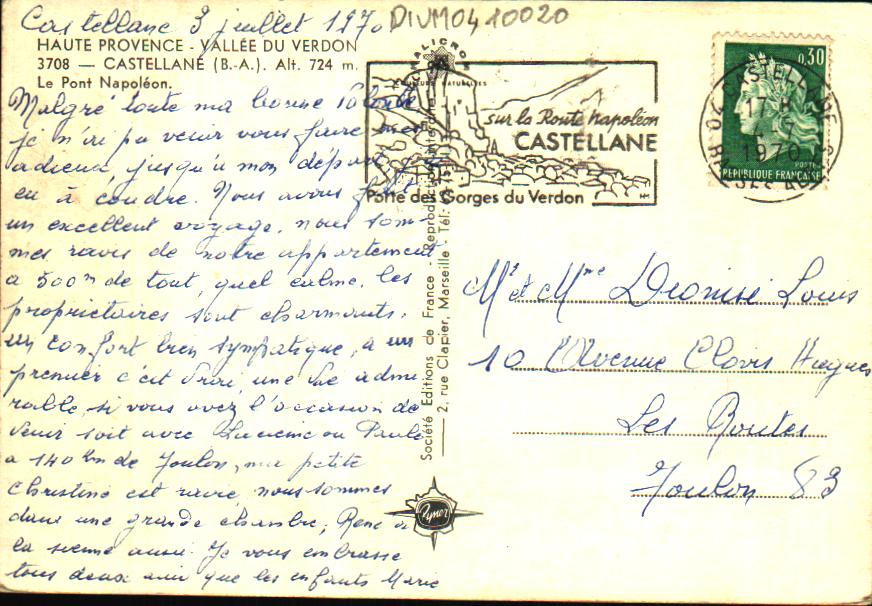 Castellane 3 juillet 1970
DIVM0410020
HAUTE PROVENCE - VALLÉE DU VERDON
3708 — CASTELLANE (B.-A.). Alt. 724 m.
Le Pont Napoléon.
Malgré toute ma bonne volonté
je n'ai pu venir vous faire mes
adieux, jusqu'à mon départ j'ai
eu à coudre. Nous avons fait
un excellent voyage, nous som-
mes ravis de notre appartement
a 500m de tout, quel calme, les
propriétaires sont charmants,
un confort bien sympatique, a un
premier c'est vrai, une vue admi
rable, si vous avez l'occasion de
venir soit avec Lucienne ou Paule
a 140 km de Toulon, ma petite
Christine est ravie, nous sommes
dans une grande chambre, René a
la sienne aussi. Je vous embrasse
tous deux ainsi que les enfants Marie
Société Editions de France - Reproduction interdite
2, rue Clapier, Marseille - Tél:
sur la Route Napoléon
CASTELLANE
Porte des Gorges du Verdon
0,30
POSTES
REPUBLIQUE FRANÇAISE
CASTELLANE
17 H
4 - 7
1970
04 BASSES ALPES
Mr et Mme Dionisi Louis
10 Avenue Clovis Hugues
Les Routes
Toulon 83